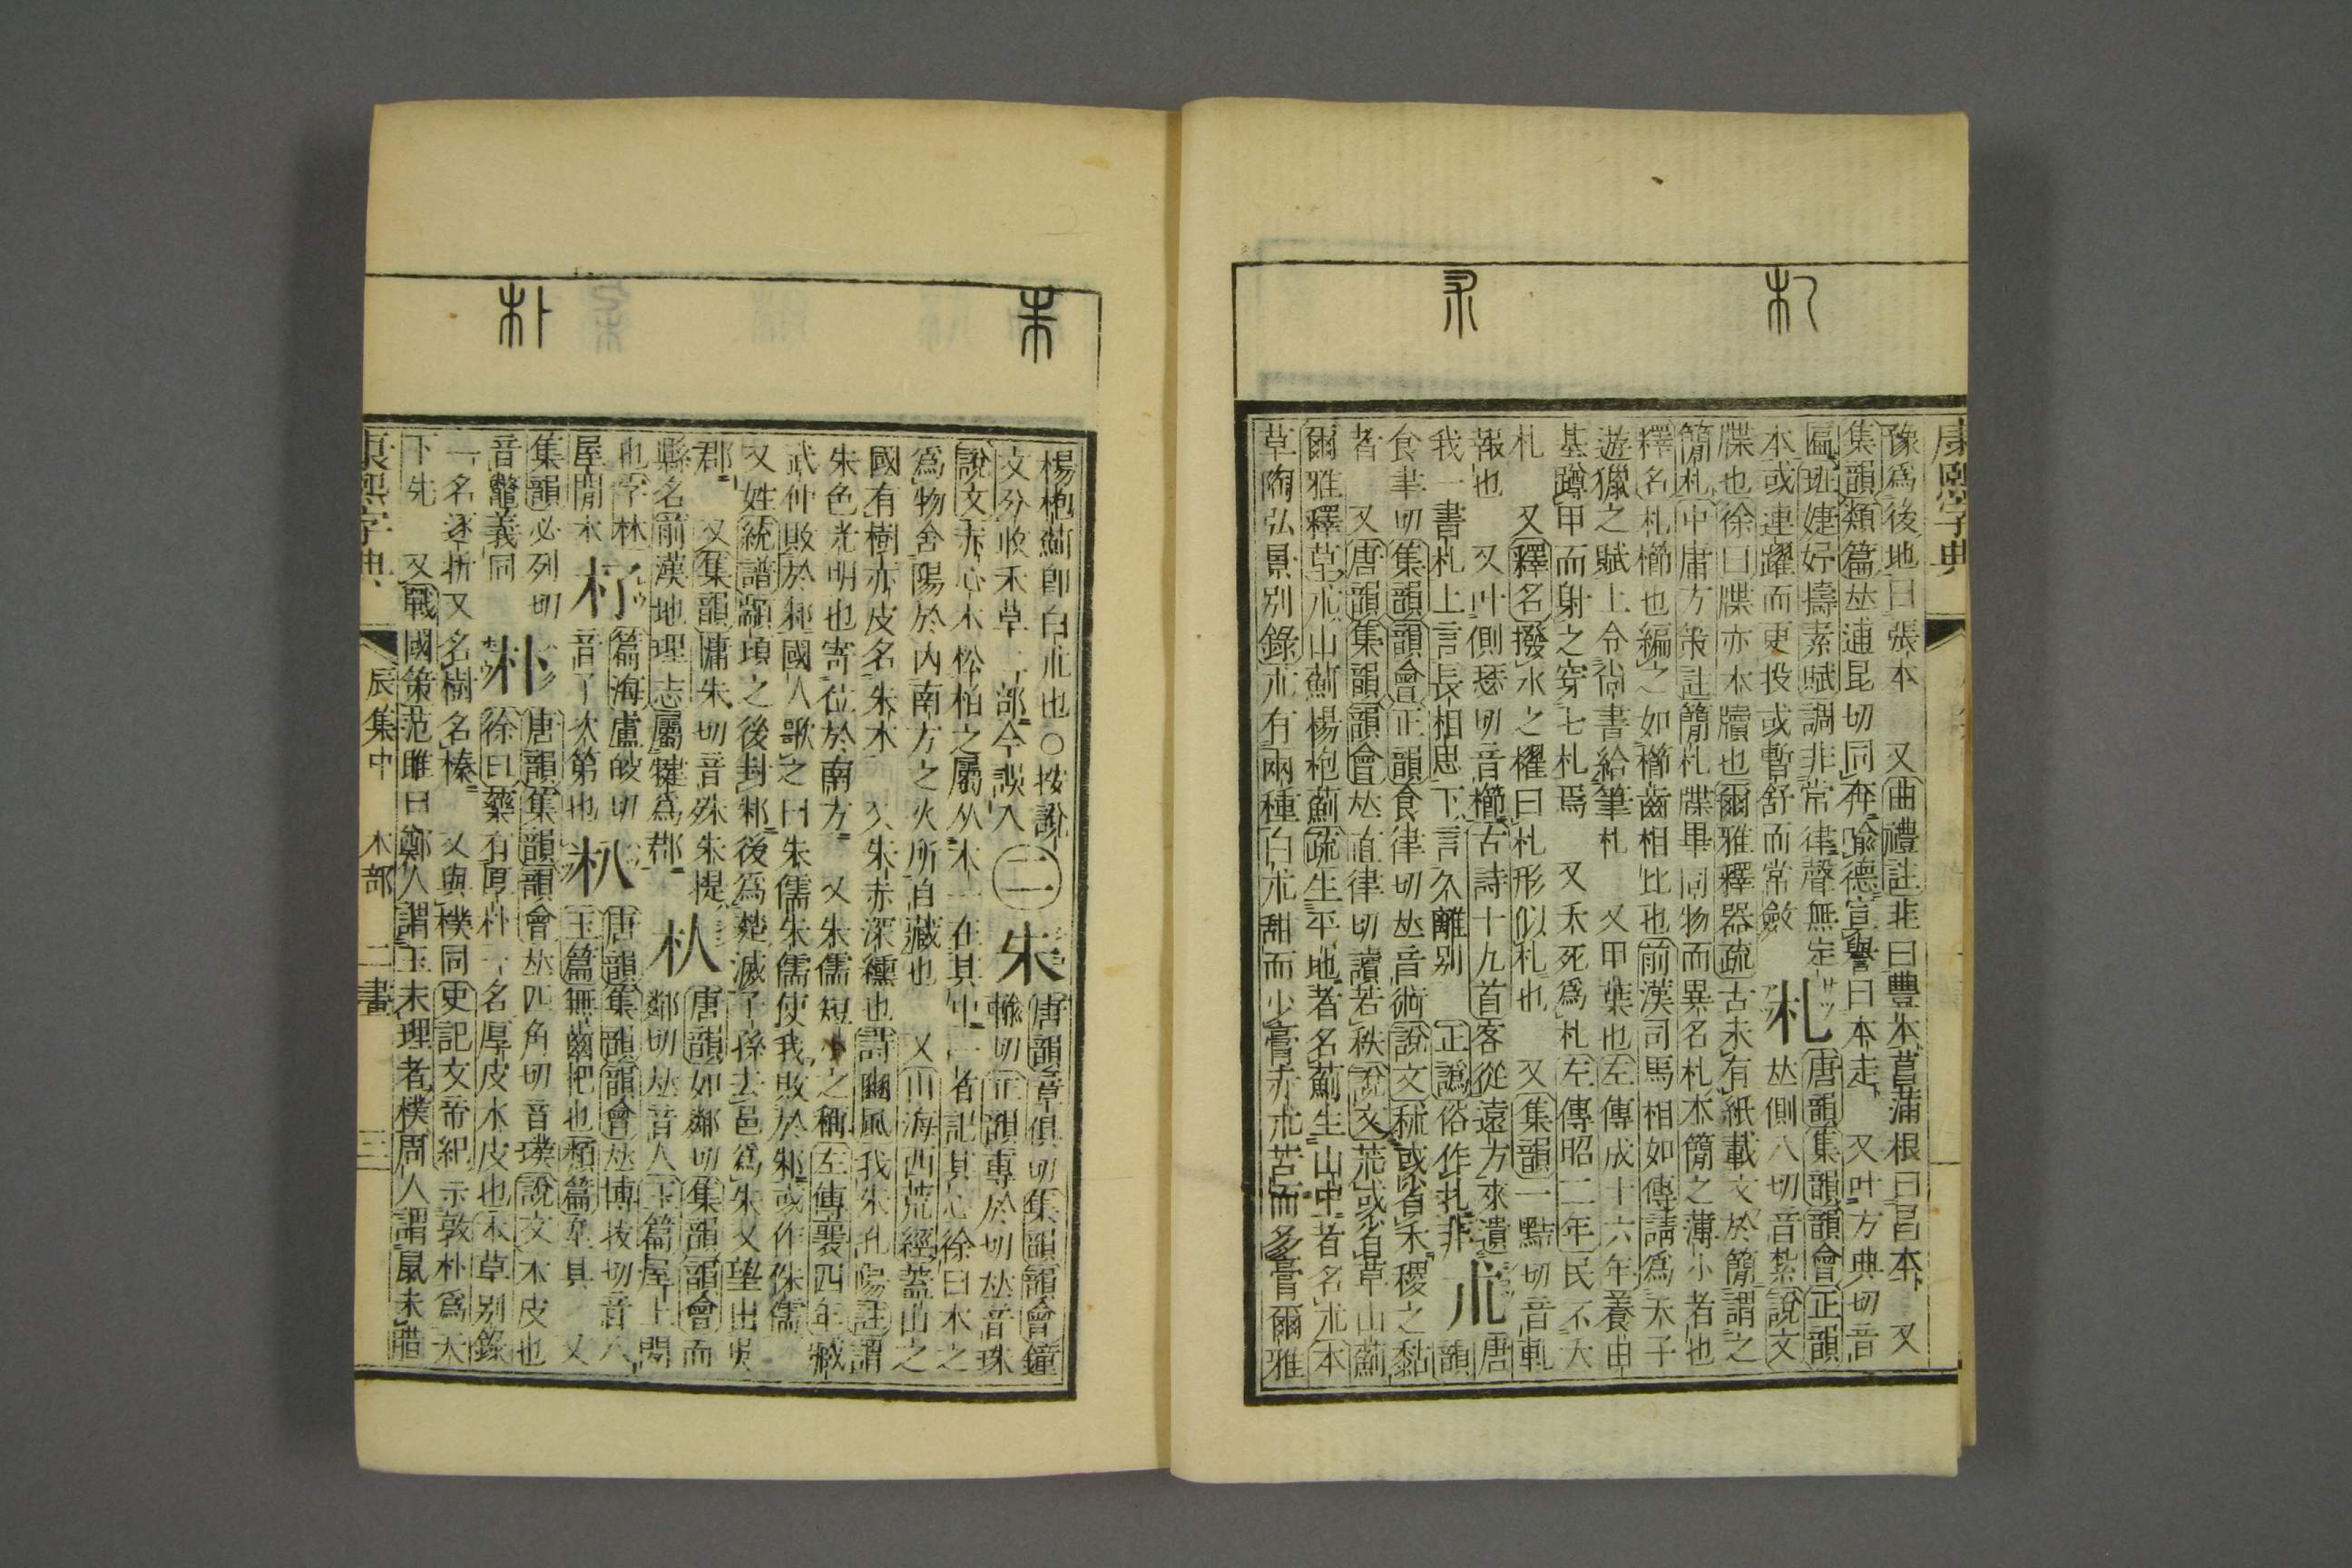 札
朮
康熙字典
豫爲後地曰張本 又曲禮註韭曰豐本菖蒲根曰昌本 又
集韻類篇𠀤逋昆切同奔喻德宣譽曰本走 又叶方典切音
匾班婕妤擣素賦調非常律聲無定 札 唐韻集韻韻會正韻
本或連躍而更投或暫舒而常斂 𠀤側八切音紥說文
牒也徐曰牒亦木牘也爾雅釋器疏古未有紙載文於簡謂之
簡札中庸方策註簡札牒畢同物而異名札木簡之薄小者也
釋名札櫛也編之如櫛齒相比也前漢司馬相如傳請爲天子
遊獵之賦上令尙書給筆札 又甲葉也左傳成十六年養由
基蹲甲而射之穿七札焉 又夭死爲札左傳昭二年民不夭
札 又釋名撥水之櫂曰札形似札也 又集韻一黠切音軋
報也 又叶側瑟切音櫛古詩十九首客從遠方來遺
我一書札上言長相思下言久離别 正譌俗作扎非 朮 唐韻
食聿切集韻韻會正韻食律切𠀤音術說文秫或省禾稷之黏
者 又唐韻集韻韻會𠀤直律切讀若秫說文荒或省草山薊
爾雅釋草朮山薊楊枹薊疏生平地者名薊生山中者名朮本
草陶弘景別錄朮有兩種白朮甜而少膏赤朮苦而多膏爾雅
朱
朴
楊枹薊卽白朮也○按說
文分收禾草二部今誤入 二 朱 唐韻章俱切集韻韻會鐘
輸切正韻專於切𠀤音珠
說文赤心木松柏之屬从木一在其中一者記其心徐曰木之
爲物含陽於內南方之火所自藏也 又山海西荒經蓋山之
國有樹赤皮名朱木 又朱赤深纁也詩豳風我朱孔陽註謂
朱色光明也寄位於南方 又朱儒短小之稱左傳襄四年臧
武仲敗於邾國人歌之曰朱儒朱儒使我敗於邾或作侏儒
又姓統譜顓頊之後封邾後爲楚滅子孫去邑爲朱又望出吳
郡 又集韻慵朱切音殊朱提
縣名前漢地理志屬犍爲郡 朲 唐韻如鄰切集韻韻會而
鄰切𠀤音人玉篇屋上閒
也字林
屋閒木 朾 篇海盧皎切
音了次第也 朳 唐韻集韻韻會𠀤博拔切音八
玉篇無齒杷也類篇𠦒具 又
集韻必列切
音䭱義同 朴 唐韻集韻韻會𠀤匹角切音璞說文木皮也
徐曰藥有厚朴一名厚皮木皮也本草別錄
一名逐折又名樹名榛 又與樸同史記文帝紀示敦朴爲天
下先 又戰國策范雎曰鄭人謂玉未理者樸周人謂鼠未腊
康熙字典 辰集中 木部 二畫 三